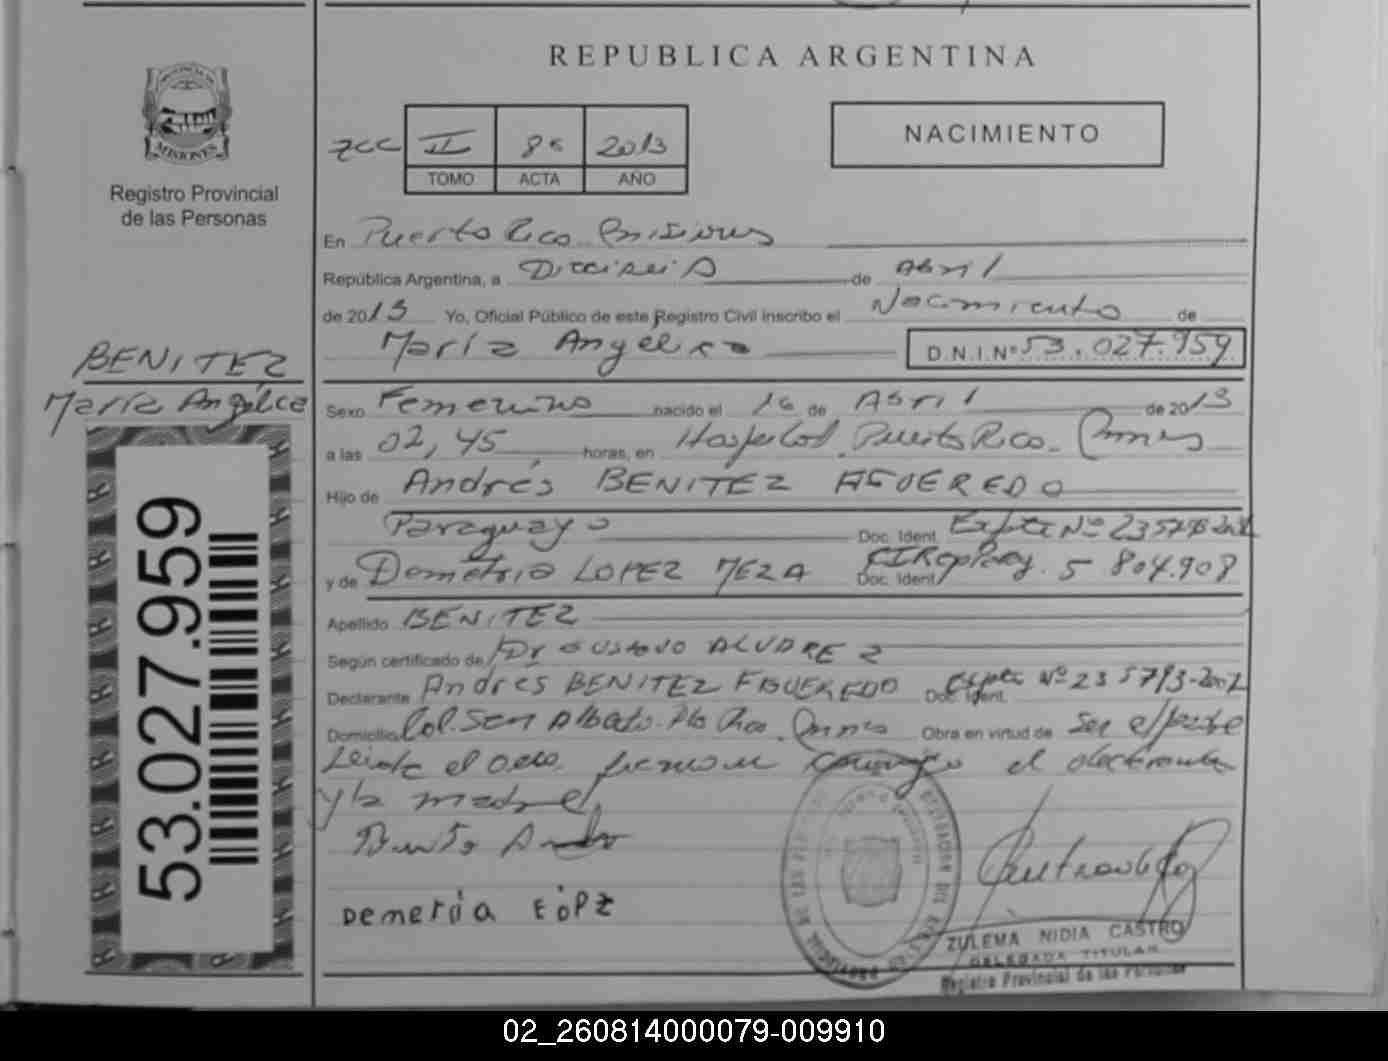 REPUBLICA ARGENTINA
PROVINCIA DE
MISIONES
Registro Provincial
de las Personas
NACIMIENTO
II 2013
TOMO ACTA AÑO
En Puerto Rico Misiones
República Argentina, a Dieciseis de Abril
de 2013 Yo, Oficial Público de este Registro Civil inscribo el Nacimiento de
María Angélica D.N.I.Nº 53.027.959
BENITEZ
María Angélica
53.027.959
Sexo Femenino nacido el 16 de Abril de 2013
a las 02,45 horas, en Hospital Puerto Rico.
Hijo de Andrés BENITEZ FIGUEREDO
Paraguayo Doc. Ident. Expte Nº
y de Demetria LOPEZ MEZA Doc. Ident. 5 804.908
Apellido BENITEZ
Según certificado de Dr GUSTAVO ALVAREZ
Declarante Andrés BENITEZ FIGUEREDO Doc. Ident. Expte Nº 235793-2002
Domicilio Col. San Alberto Pto Rico Obra en virtud de Ser el padre
Leida el acta firman conmigo el declarante
y la madre
DemetRia LÓPZ
ZULEMA NIDIA CASTRO
DELEGADA TITULAR
Registro Provincial de las Personas
02_260814000079-009910